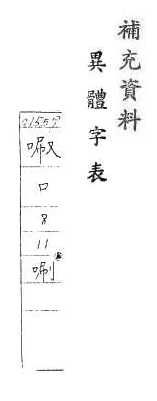 補充資料
異體字表
口
8
11
唰